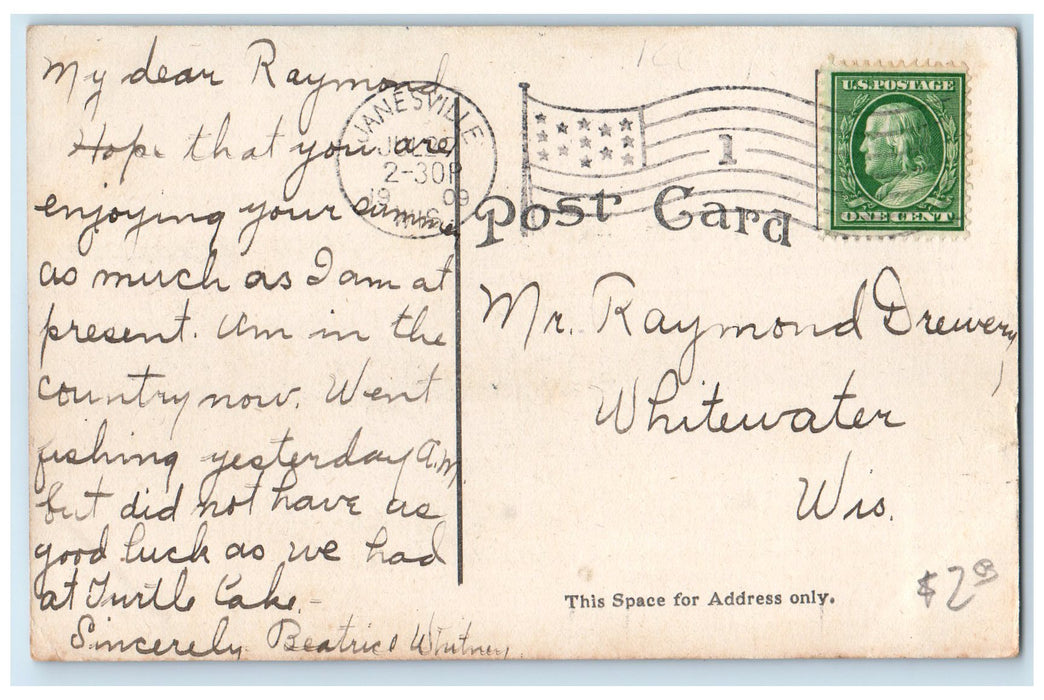 My dear Raymond
Hope that you are
enjoying your summer
as much as I am at
present. Am in the
country now. Went
fishing yesterday A.M.
but did not have as
good luck as we had
at Turtle Lake.-
Sincerely Beatrice Whitney.
JANESVILLE
2-30P
1909
WIS
1
U.S.POSTAGE
ONE CENT
Post Card
Mr. Raymond Drewery,
Whitewater
Wis.
This Space for Address only.
$2.00